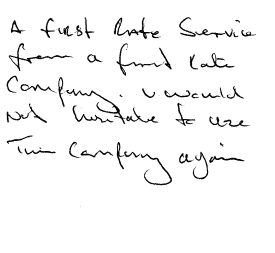 A first Rate Service
from a first Rate
Company. I would
Not hesitate to use
This Company again